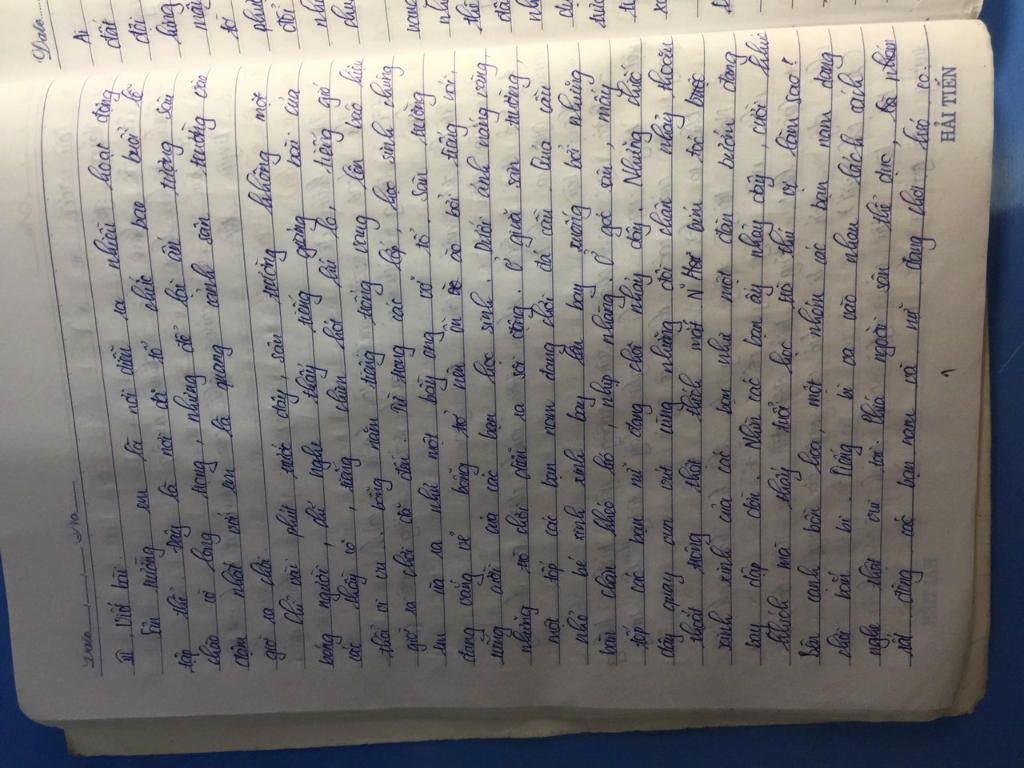 Date
II, Viết bài
Sân trường em là nơi diễn ra nhiều hoạt động
tập thể. Đây là nơi để tổ chức bao buổi lễ
chào cờ long trọng, nhưng để lại ấn tượng sâu
đậm nhất với em là quang cảnh sân trường vào
giờ ra chơi
Chỉ vài phút trước đây, sân trường không một
bóng người, chỉ nghe thấy tiếng giảng bài của
các thầy cô, tiếng chim hót líu lo, tiếng gió
thổi vi vu. Bỗng năm tiếng trống vang lên báo hiệu
giờ ra chơi đã đến. Từ trong các lớp, học sinh chúng
em ùa ra như một bầy ong vỡ tổ. Sân trường
đang vắng vẻ bỗng trở nên ồn ào bởi tiếng nói,
tiếng cười của các bạn học sinh. Dưới ánh nắng vàng,
những trò chơi diễn ra sôi động. Ở giữa sân trường,
một tốp các bạn nam đang chơi đá cầu. Quả cầu
nhỏ bé xinh xinh bay lên bay xuống bởi những
bàn chân khéo léo, nhịp nhàng. Ở góc sân, mấy
tốp các bạn nữ đang chơi nhảy dây. Những chiếc
dây quay vun vút cùng những đôi chân nhảy thoăn
thoắt trông thật thích mắt. bím tóc
xinh xinh của các bạn như một đàn bướm đang
bay dập dờn. Nhìn các bạn ấy nhảy dây, cười khúc
khích mà thấy tuổi học trò thú vị làm sao!
Bên cạnh bồn hoa, một nhóm các bạn nam đang
chơi bắn bi. Tiếng bi va vào nhau lách cách
nghe thật vui tai. Phía ngoài sân thể dục,
rất đông các bạn nam và nữ đang chơi kéo co.
HẢI TIẾN
Date
Ai
đất
đội